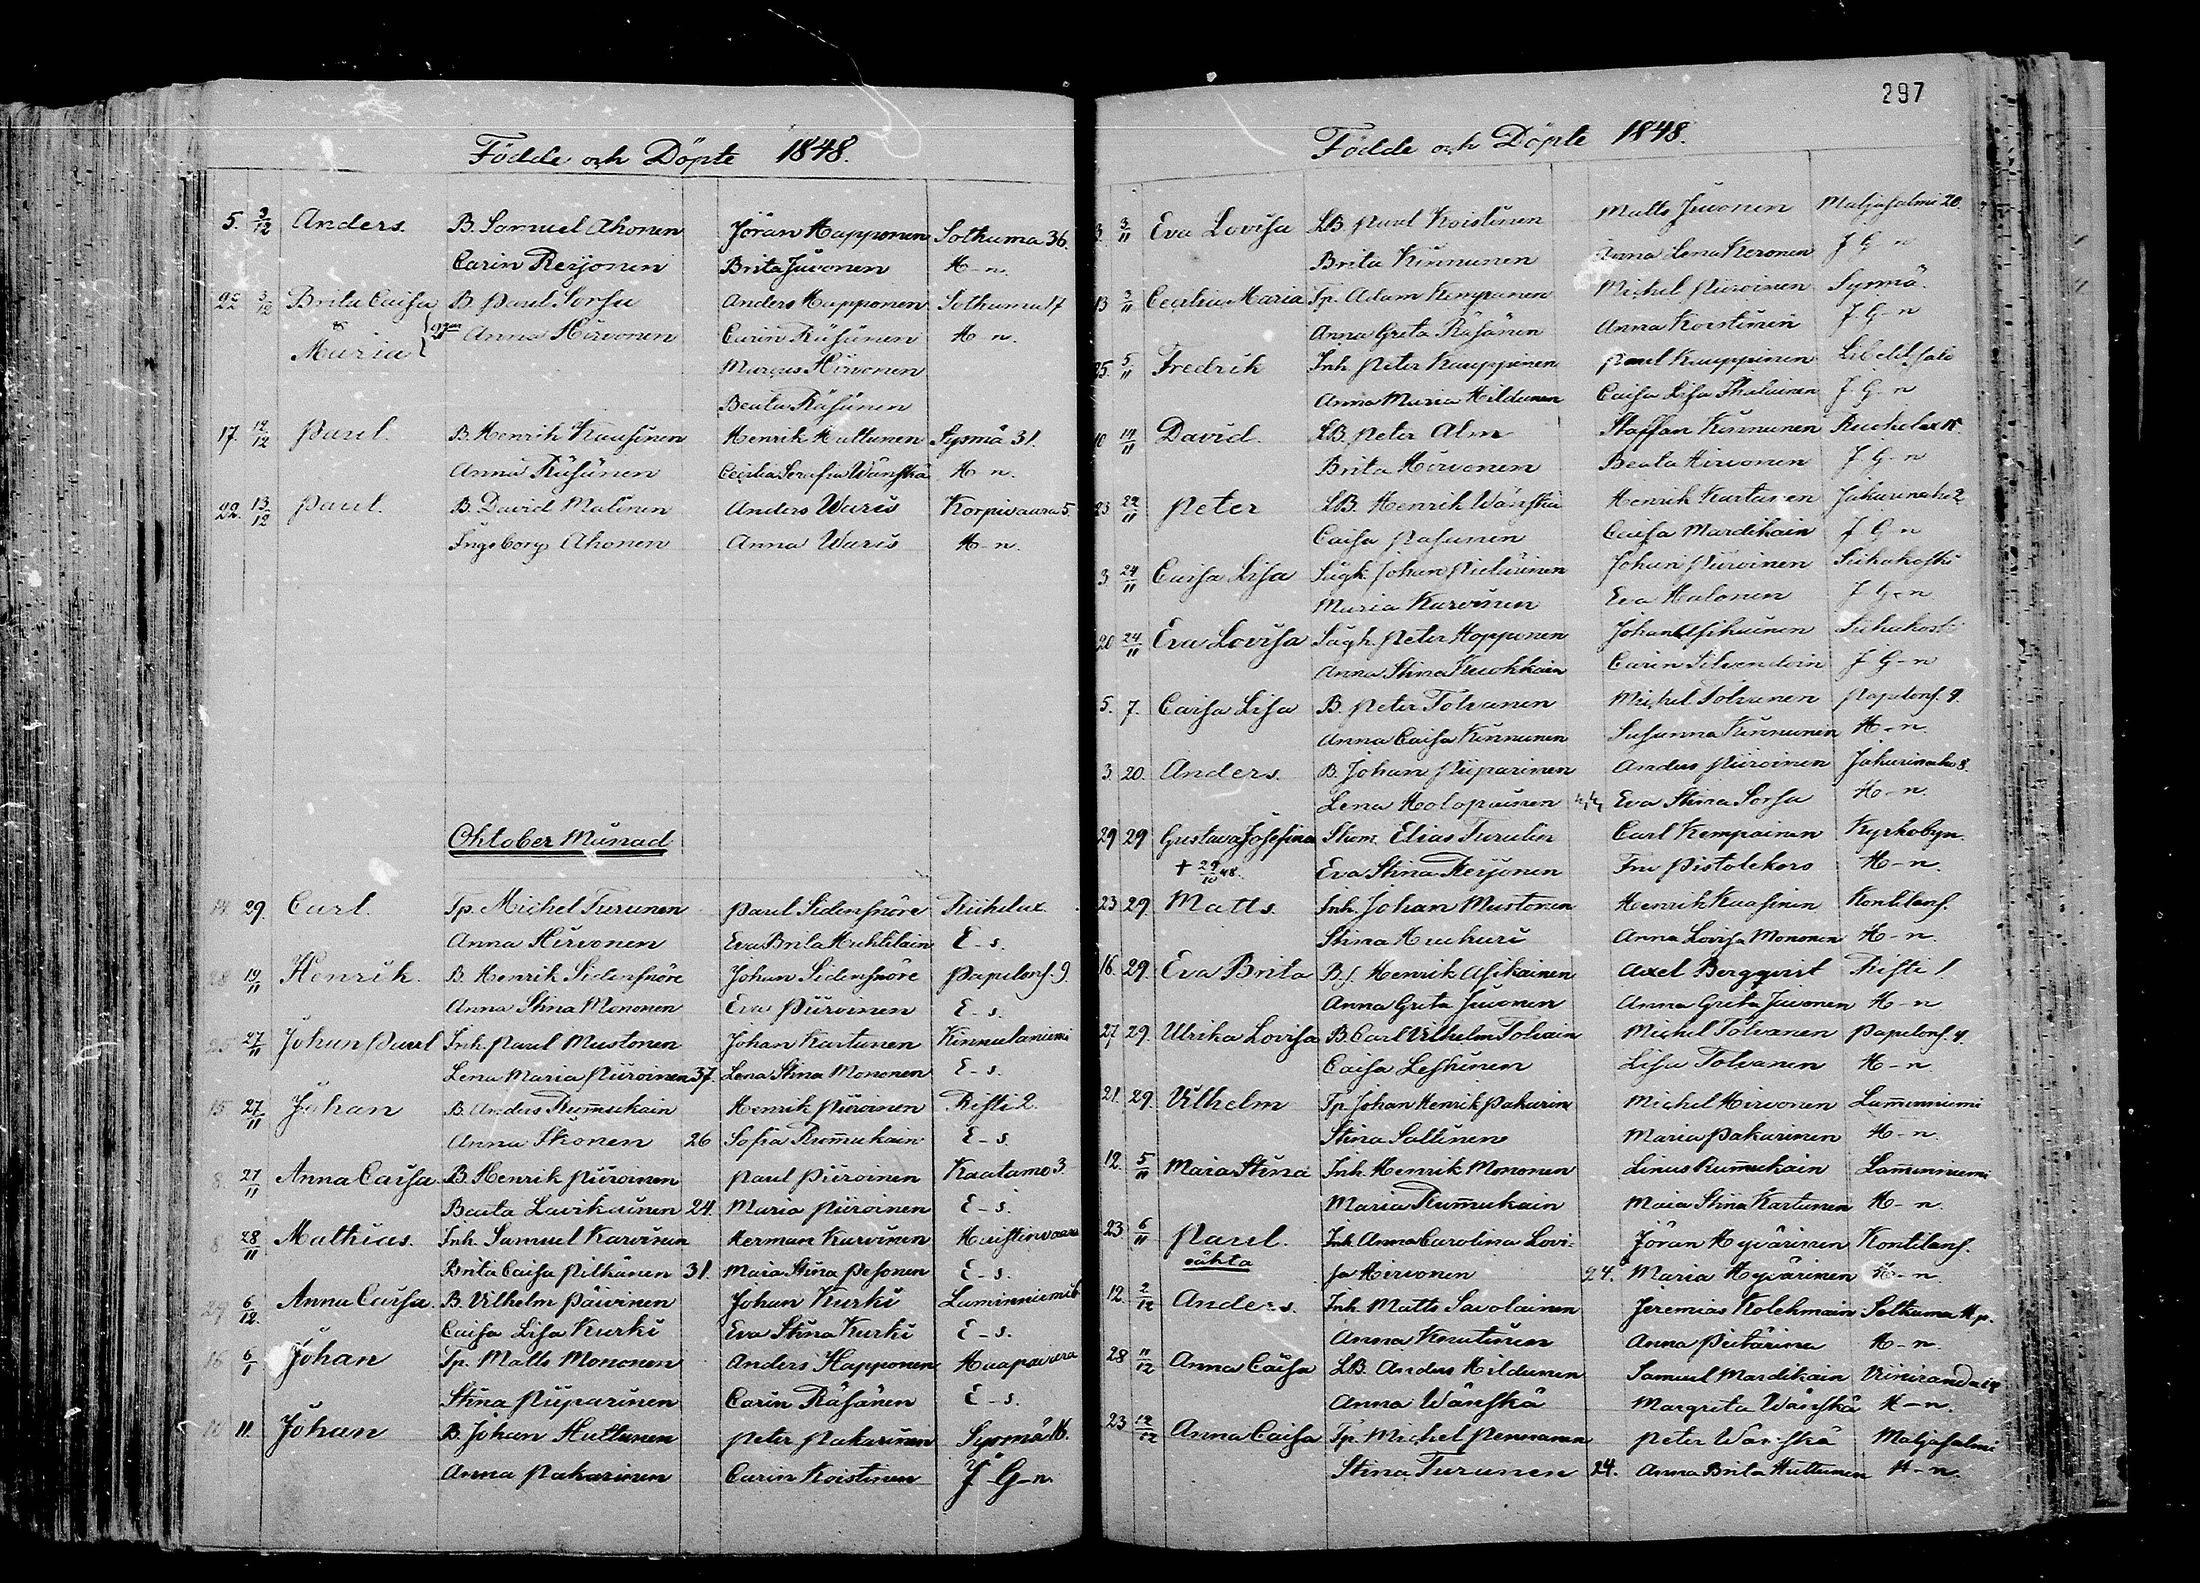 Födde och Döpte 1848.
5. 3/12 Anders. B. Samuel Ahonen Jöran Happonen Sotkuma 36.
Carin Reijonen Brita Juvonen H-n.
3/12 Brita Caisa B. Paul Sorsa Anders Happonen Sotkuma 17
& Maria Anna Hirvonen Carin Räsänen H-n.
Marcus Hirvonen
Beata Räsänen
17. 12/12 Paul. B. Henrik Kaasinen Henrik Huttunen Sysmä 31.
Anna Räsänen Cecilia Serafia Wänskä H-n.
22. 13/12 Paul. B. David Malinen Anders Waris Korpivaara 5.
Ingeborg Ahonen Anna Waris H-n.
Oktober Månad
14. 29. Carl. Tp. Michel Turunen Paul Sidensnöre Riihilax.
Anna Hirvonen Eva Brita Huhtilain E-s.
28 19/11 Henrik. B. Henrik Sidensnöre Johan Sidensnöre Papelons. 9.
Anna Stina Mononen Eva Piiroinen E-s.
25 27/11 Johan Paul Inh. Paul Mustonen Johan Kartunen Kinnulaniemi
Lena Maria Piiroinen 37. Lena Stina Mononen E-s.
15 27/11 Johan B. Anders Rummukain Henrik Piiroinen Risti 2.
Anna Ikonen 26 Sofia Rummukain E-s.
8. 27/11 Anna Caisa. B. Henrik Piiroinen Paul Piiroinen Kaatamo 3.
Beata Lavikainen 24. Maria Piiroinen E-s.
8 28/11 Mathias. Inh. Samuel Karvinen Herman Karvinen Huistinvaara
Brita Caisa Pitkänen 31. Maia Stina Pesonen E-s.
29 6/12. Anna Caisa. B. Vilhelm Päivinen Johan Kurki Lamminniemi 6
Caisa Lisa Kurki Eva Stina Kurki E-s.
16 6/1 Johan Tp. Matts Mononen Anders Happonen Haapavaara
Stina Piiparinen Carin Räsänen E-s.
11. Johan B. Johan Huttunen Peter Pakarinen Sysmä 16.
Anna Pakarinen Carin Koistinen J G-n.
297
Födde och Döpte 1848.
3. 3/11 Eva Lovisa LB. Paul Koistinen Matts Juvonen Maljasalmi 20.
Brita Kinnunen Anna Lena Keronen J G-n
13 3/11 Cecilia Maria Tp. Adam Kempanen Michel Piiroinen Sysmä.
Anna Greta Räsänen Anna Koistinen J G-n
25. 5/11 Fredrik Inh. Peter Kauppinen Paul Kauppinen Libelits
Anna Maria Hildunen Caisa Lisa J G-n
10 19/11 David. LB. Peter Alm Staffan Kinnunen
Brita Hirvonen Beata Hirvonen J G-n
23 22/11 Peter LB. Henrik Wänskä Henrik Kartunen Jakarinaho 2
Caisa Pasanen Caisa Mardikain J G-n
3 24/11 Caisa Lisa Sågk. Johan Pietarinen Johan Piiroinen Siikakoski
Maria Karvinen Eva Halonen J G-n
20 24/11 Eva Lovisa Sågk. Peter Hopponen Johan Asikainen Siikakoski
Anna Stina Kuokkain Carin Silvendoin J G-n
5. 7. Caisa Lisa B. Peter Tolvanen Michel Tolvanen Papelons. 9.
Anna Caisa Kinnunen Susanna Kinnunen H-n.
3 20. Anders. B. Johan Piiparinen Anders Piiroinen Jakarinaho 8.
Lena Holopainen Eva Stina Sorsa H-n.
29 29 Gustava Josefina Skom. Elias Turulin Carl Kempainen Kyrkobyn
+ 29/10 48. Eva Stina Reijonen Fru Pistolekors H-n.
23 29. Matts. Inh. Johan Mustonen Henrik Kaasinen Kontilans.
Stina Huuhari Anna Lovisa Mononen H-n.
16. 29. Eva Brita B.s. Henrik Asikainen Axel Bergqvist Risti 1.
Anna Greta Juvonen Anna Greta Juvonen H-n
27. 29. Ulrika Lovisa B. Carl Vilhelm Tolvain Michel Tolvanen Papelons. 9.
Caisa Leskinen Lisa Tolvanen H-n
21. 29. Vilhelm Tp. Johan Henrik Pakarin Michel Hirvonen Lamminniemi
Stina Sallinen Maria Pakarinen H-n.
12. 5/11 Maia Stina Inh. Henrik Mononen Linus Rummukain Lamminniemi
Maria Rummukain Maia Stina Kartunen H-n
23 6/11 Paul. Inh. Anna Carolina Lovi= Jöran Hyvärinen Kontilans.
oäkta sa Hirvonen 24. Maria Hyvärinen H-n
12. 2/12 Anders. Inh. Matts Savolainen Jeremias Kolehmain Sotkuma H.p.
Anna Knutinen Anna Pietärinen H-n.
28 11/12 Anna Caisa LB. Anders Hildunen Samuel Mardikain Viiniranda 14
Anna Wänskä Margreta Wänskä H-n.
23 12/12 Anna Caisa Tp. Michel Pennanen Peter Wänskä Maljasalmi
Stina Turunen 24. Anna Brita Huttunen H-n.